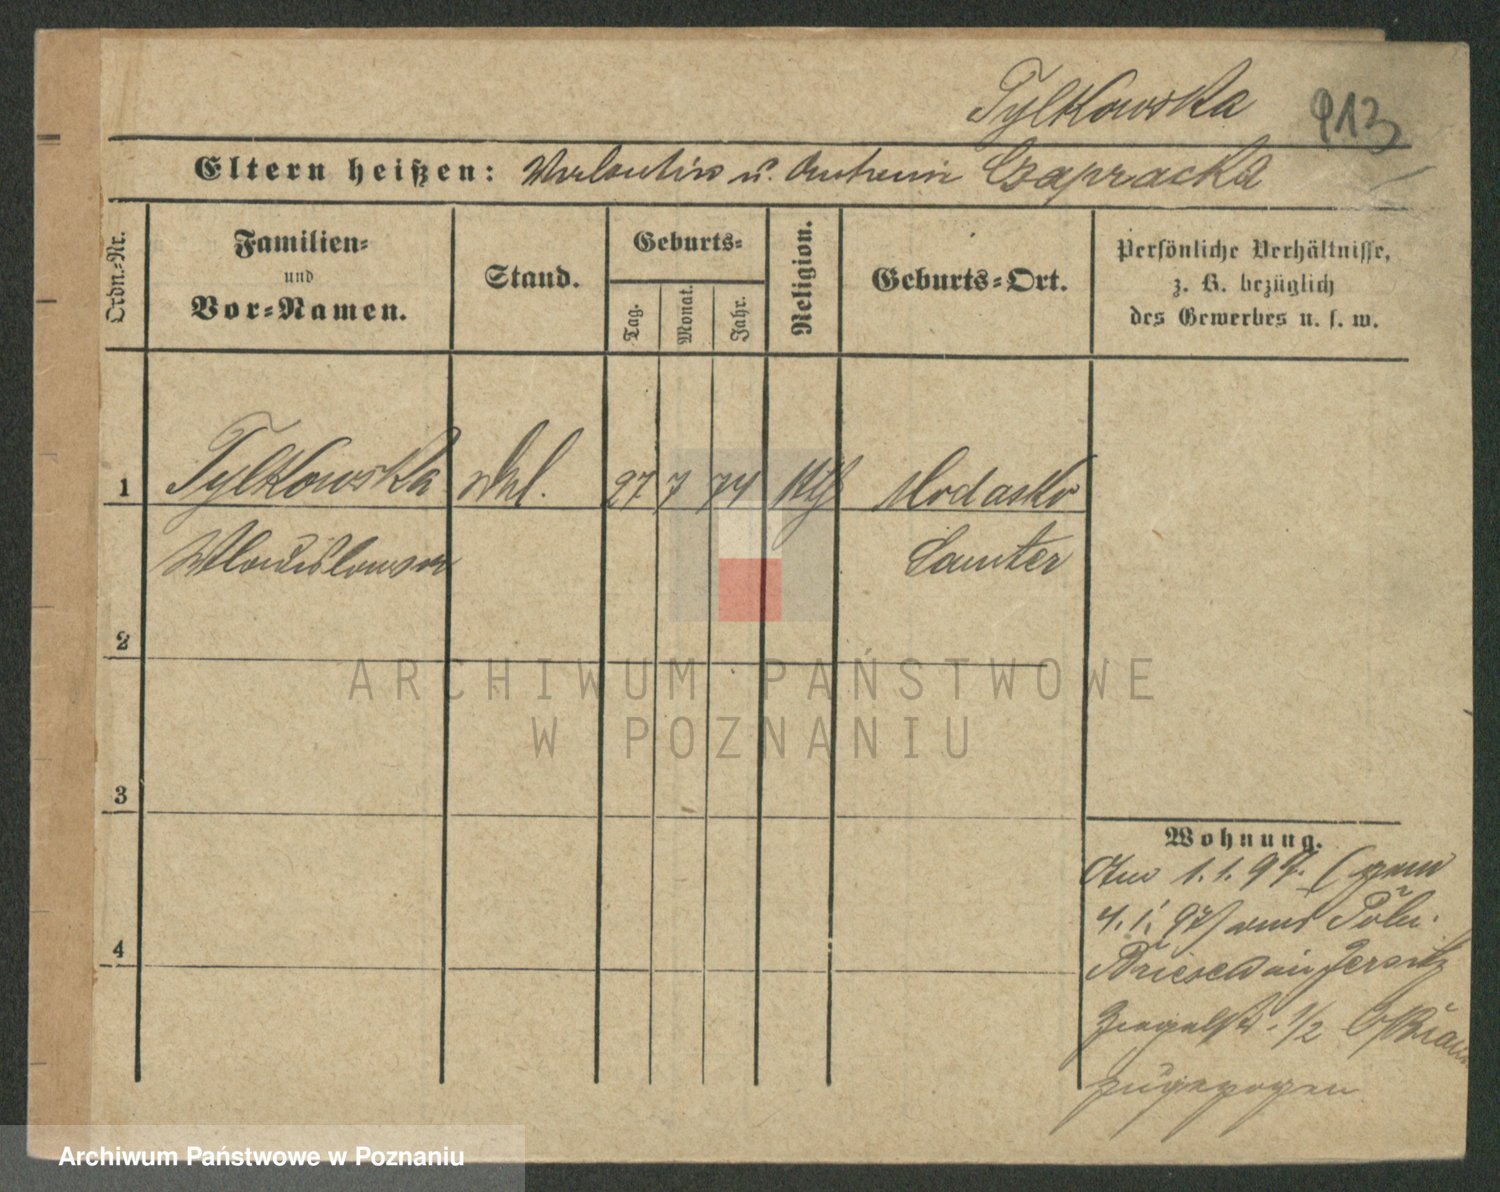 Tylkowska
913
Eltern heißen: Valentin u. Antonie Czapracka
Ordn.-Nr.
Familien-
und
Vor-Namen.
Stand.
Geburts-
Tag.
Monat.
Jahr.
Religion.
Geburts-Ort.
Persönliche Verhältnisse,
z. B. bezüglich
des Gewerbes u. s. w.
1 Tylkowska 27 7 74 kth
Wladislawa Samter
2
3
4
Wohnung.
Am 1.1.97. (gem
4.1.97) aus Poln.
Briesen in Jersitz
Ziegelstr. 1/2
zugezogen
ARCHIWUM PAŃSTWOWE
W POZNANIU
Archiwum Państwowe w Poznaniu